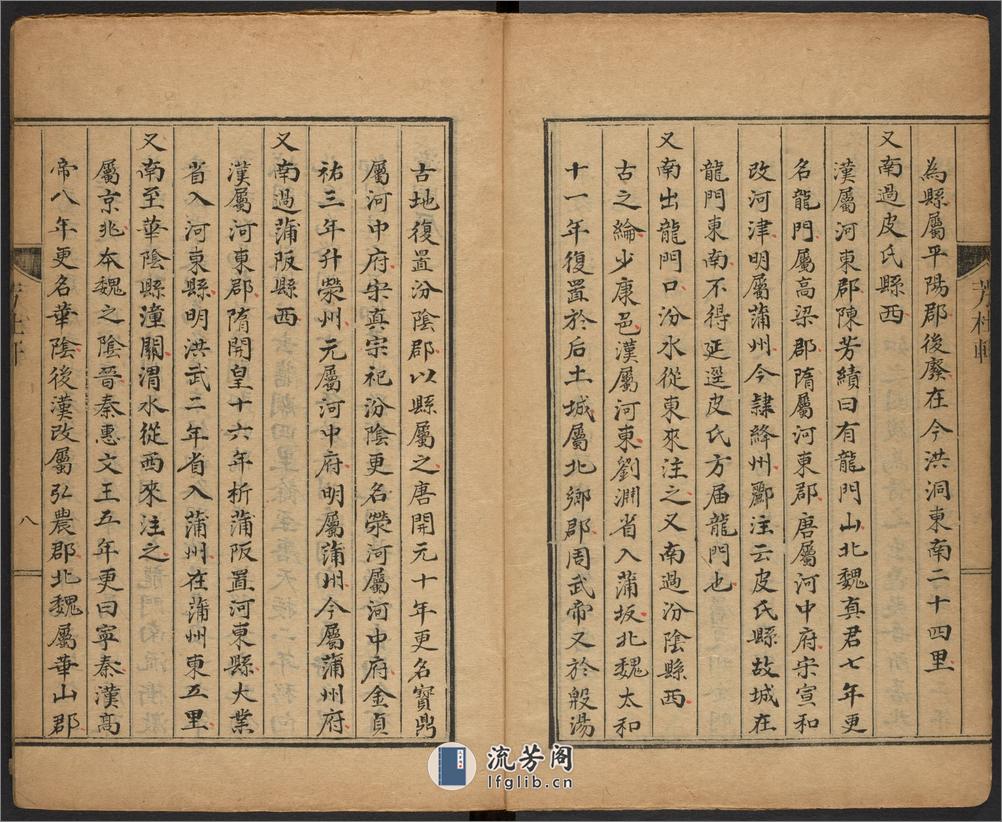 為縣屬平陽郡後廢在今洪洞東南二十四里
又南過皮氏縣西
漢屬河東郡陳芳績曰有龍門山北魏真君七年更
名龍門屬高梁郡隋屬河東郡唐屬河中府宋宣和
改河津明屬蒲州今隷絳州酈注云皮氏縣故城在
龍門東南不得延逕皮氏方届龍門也
又南出龍門口汾水從東來注之又南過汾陰縣西
古之綸少康邑漢屬河東劉淵省入蒲坂北魏太和
十一年復置於后土城屬北鄉郡周武帝又於殷湯
古地復置汾陰郡以縣屬之唐開元十年更名寶鼎
屬河中府宋真宗祀汾陰更名榮河屬河中府金貞
祐三年升榮州元屬河中府明屬蒲州今屬蒲州府
又南過蒲阪縣西
漢屬河東郡隋開皇十六年析蒲阪置河東縣大業
省入河東縣明洪武二年省入蒲州在蒲州東五里
又南至華陰縣潼關渭水從西來注之
屬京兆本魏之陰晉秦惠文王五年更曰寧秦漢高
帝八年更名華陰後漢改屬弘農郡北魏屬華山郡
八
流芳阁
lfglib.cn